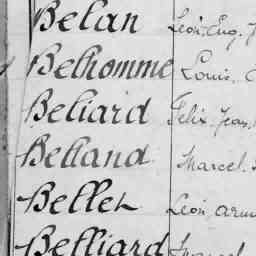 Belan Léon, Eug. J
Belhomme Louis, C
Beliard Félix, Jean,
Belland Marcel,
Bellet Léon, Arm
Belliard Marcel